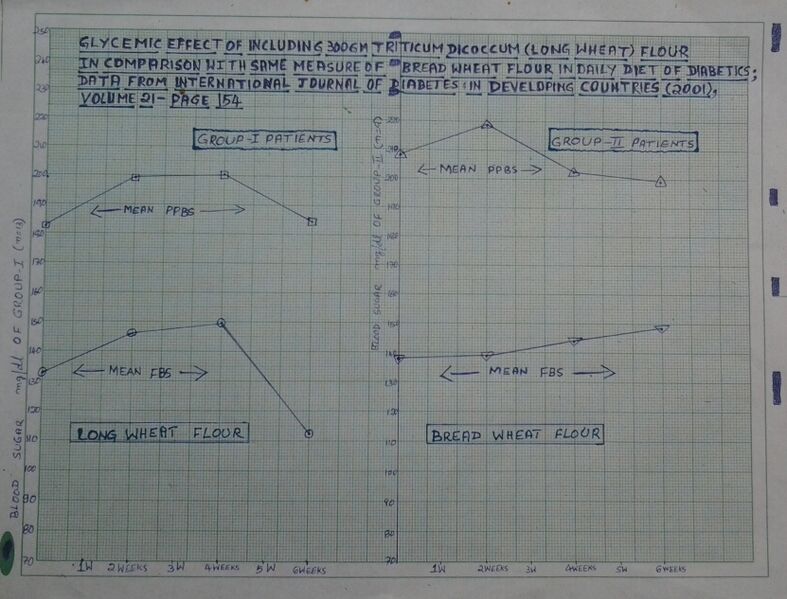 GLYCEMIC EFFECT OF INCLUDING 300GM TRITICUM DICOCCUM (LONG WHEAT) FLOUR
IN COMPARISON WITH SAME MEASURE OF BREAD WHEAT FLOUR IN DAILY DIET OF DIABETICS;
DATA FROM INTERNATIONAL JOURNAL OF DIABETES IN DEVELOPING COUNTRIES (2001),
VOLUME 21- PAGE 154
GROUP-I PATIENTS
MEAN PPBS
MEAN FBS
LONG WHEAT FLOUR
BLOOD SUGAR mg/dl OF GROUP-I (n=13)
250
240
230
220
210
200
190
180
170
160
150
140
130
110
100
90
80
70
1W 2WEEKS 3W 4WEEKS 5W 6WEEKS
GROUP-II PATIENTS
MEAN PPBS
MEAN FBS
BREAD WHEAT FLOUR
BLOOD SUGAR mg/dl OF GROUP-II
220
210
200
190
180
170
160
150
140
130
120
110
100
90
80
70
1W 2WEEKS 3W 4WEEKS 5W 6WEEKS